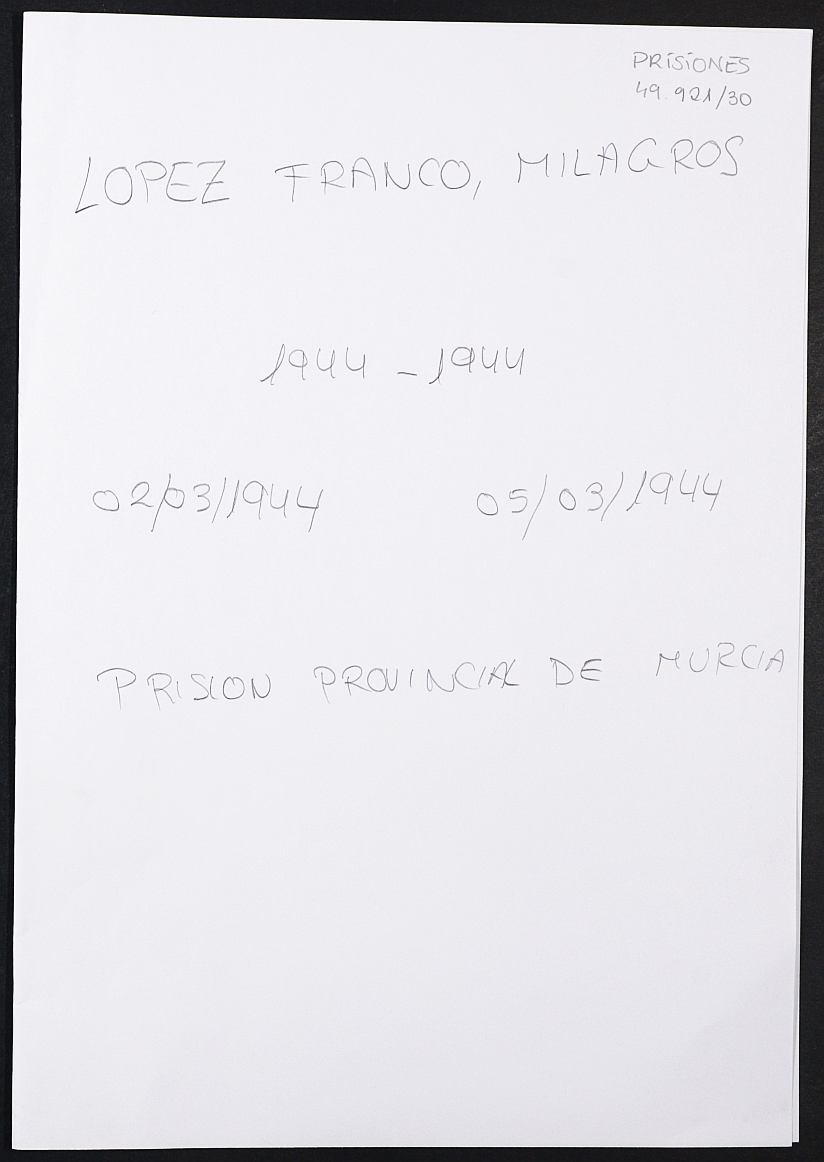 PRISIONES
49.921/30
LOPEZ FRANCO, MILAGROS
1944 - 1944
02/03/1944 05/03/1944
PRISION PROVINCIAL DE MURCIA